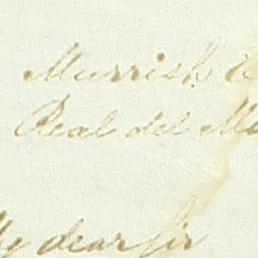 Murrish
Real del Mo
My dear sir